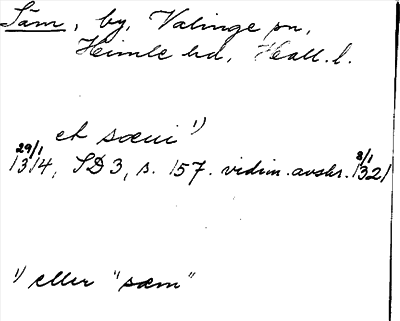 Säm, by, Valinge sn,
Himle hd, Hall. l.
et sæm 1)
29/1 1314, SD 3, s. 157. vidim. avskr. 8/1 1321
1) eller "sæm"